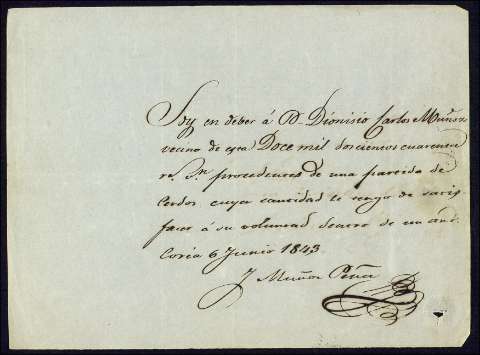 Soy en deber á D. Dionisio Carlos Muñoz
vecino de esa Doce mil doscientos cuarenta
rs. vn. procedentes de una partida de
Cerdos cuya cantidad le tengo de satis
facer á su voluntad dentro de un año.
Coria 6 Junio 1843
J Muñoz Peña